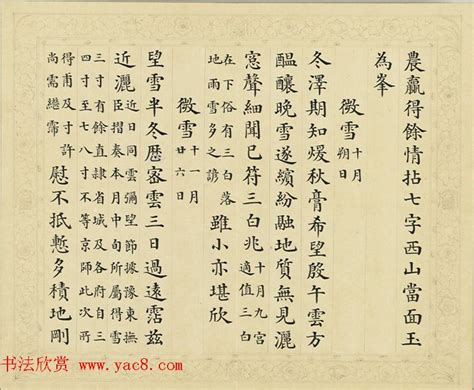 農贏得餘情拈七字西山當面玉
為峯
微雪 十月朔日
冬澤期知煖秋膏希望殷午雲方
醖釀晚雪遂繽紛融地質無見灑
窓聲細聞已符三白兆 十月九宮適值三白
在下俗有三白落地雨雪多之諺 雖小亦堪欣
微雪 十一月廿六日
望雪半冬歷密雲三日過遠霑茲
近灑 近日同雲彌望節據豫東撫臣摺奏本月中旬所屬得雪
三寸有餘直隸省城及各府自三四寸至七八寸不等京師此次所
得甫及寸許尚需繼霈 慰不抵慙多積地剛
书法欣赏 www.yac8.com